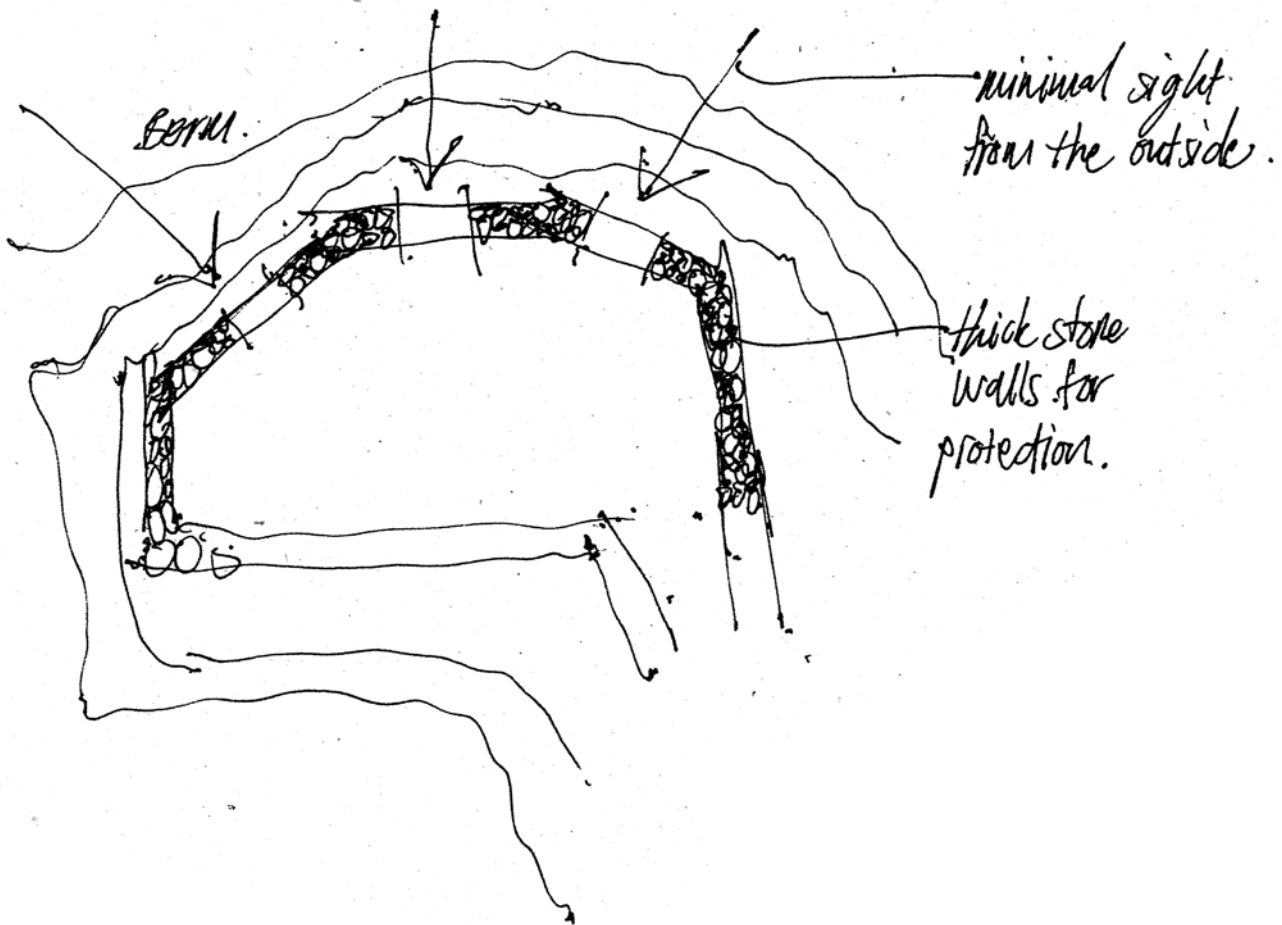 Berm.
minimal sight
from the outside.
thick stone
walls for
protection.